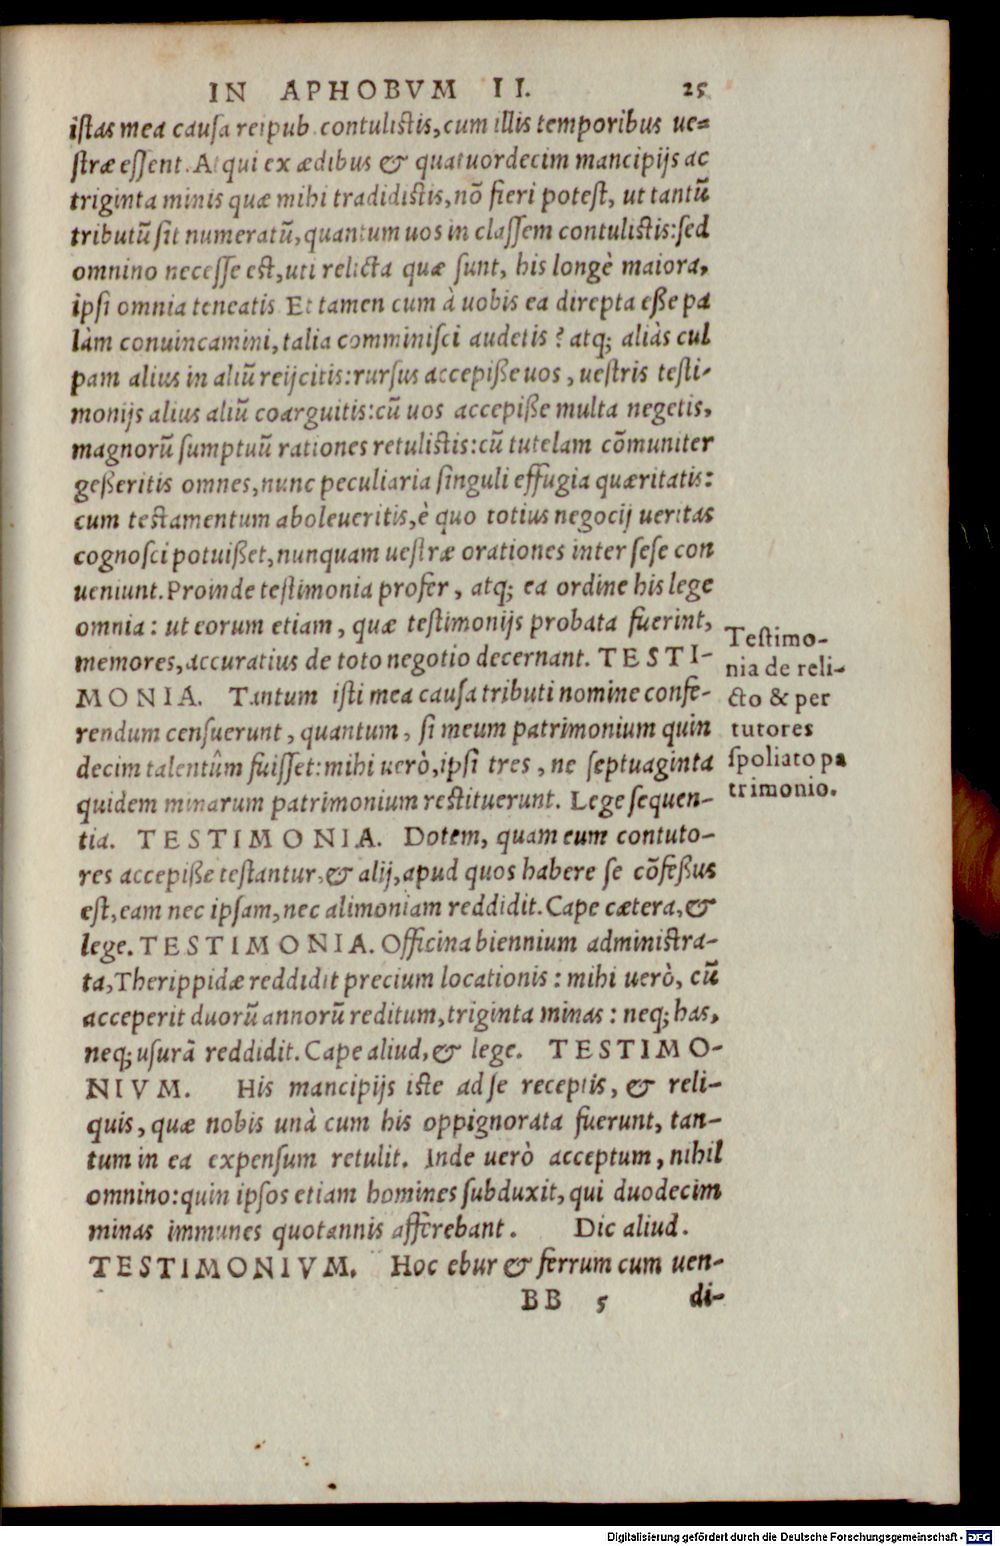 IN APHOBVM II. 25
istas mea causa reipub. contulistis, cum illis temporibus ue=
stræ essent. Atqui ex ædibus & quatuordecim mancipijs ac
triginta minis quæ mihi tradidistis, nõ fieri potest, ut tantũ
tributũ sit numeratũ, quantum uos in classem contulistis: sed
omnino necesse est, uti relicta quæ sunt, his longè maiora,
ipsi omnia teneatis Et tamen cum à uobis ea direpta eße pa
làm conuincamini, talia comminisci audetis? atq; aliàs cul
pam alius in aliũ reijcitis: rursus accepiße uos, uestris testi-
monijs alius aliũ coarguitis: cũ uos accepiße multa negetis,
magnorũ sumptuũ rationes retulistis: cũ tutelam cõmuniter
geßeritis omnes, nunc peculiaria singuli effugia quæritatis:
cum testamentum aboleueritis, è quo totius negocij ueritas
cognosci potuißet, nunquam uestræ orationes inter sese con
ueniunt. Proinde testimonia profer, atq; ea ordine his lege
omnia: ut eorum etiam, quæ testimonijs probata fuerint,
memores, accuratius de toto negotio decernant. TESTI-
MONIA. Tantum isti mea causa tributi nomine confe-
rendum censuerunt, quantum, si meum patrimonium quin
decim talentûm fuisset: mihi uerò, ipsi tres, ne septuaginta
quidem minarum patrimonium restituerunt. Lege sequen-
tia. TESTIMONIA. Dotem, quam eum contuto-
res accepiße testantur, & alij, apud quos habere se cõfeßus
est, eam nec ipsam, nec alimoniam reddidit. Cape cætera, &
lege. TESTIMONIA. Officina biennium administra-
ta, Therippidæ reddidit precium locationis: mihi uerò, cũ
acceperit duorũ annorũ reditum, triginta minas: neq; has,
neq; usurã reddidit. Cape aliud, & lege. TESTIMO-
NIVM. His mancipijs iste ad se receptis, & reli-
quis, quæ nobis unà cum his oppignorata fuerunt, tan-
tum in ea expensum retulit. Inde uerò acceptum, nihil
omnino: quin ipsos etiam homines subduxit, qui duodecim
minas immunes quotannis afferebant. Dic aliud.
TESTIMONIVM. Hoc ebur & ferrum cum uen-
BB 5 di-
Testimo-
nia de reli-
cto & per
tutores
spoliato pa
trimonio.
Digitalisierung gefördert durch die Deutsche Forschungsgemeinschaft - DFG